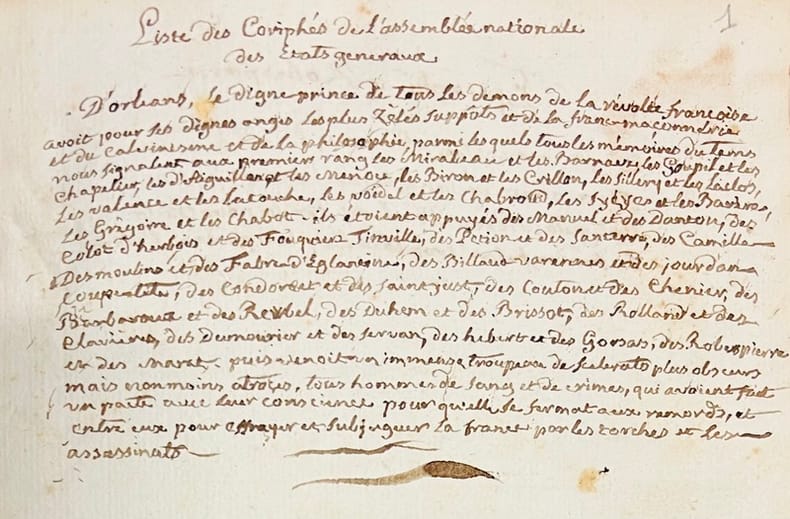 1
Liste des Coriphés de l'assemblée nationale
des Etats generaux
D'orleans, le digne prince de tous les démons de la révolte françoise
avoit pour ses dignes anges les plus zèlés suppôts et de la franc-maconnerie
et du Calvinisme et de la philosophie, parmi les quels tous les mémoires du tems
nous signalent aux premier rang les Mirabeau et les Barnave, les Goupil et les
Chapelier, les d'Aiguillon et les Menou, les Biron et les Crillon, les Sillery et les Laclos,
les valence et les Latouche, les voidel et les Chabroud, les Syeyes et les Barère,
les Grègoire et les Chabot. ils étoient appuyés des Manuel et des Danton, des
Colot d'herbois et des Fouquier Tinville, des Petion et des Santerre, des Camille
Desmoulins et des Fabre d'Eglantine, des Billaud varennes et des jourdan
Coupetête, des Condorcet et des Saint just, des Couton et des Chenier, des
Barbaroux et des Rewbel, des Duhem et des Brissot, des Rolland et des
Clavières, des Dumourier et des Servan, des hebert et des Gorsas, des Robespierre
et des Marat. puis venoit un immense troupeau de scelerats plus obscurs
mais non moins atroces, tous hommes de sang et de crimes, qui avoient fait
un pacte avec leur conscience pour qu'elle se fermat aux remords, et
entre eux pour effrayer et subjuguer la france par les torches et les
assassinats